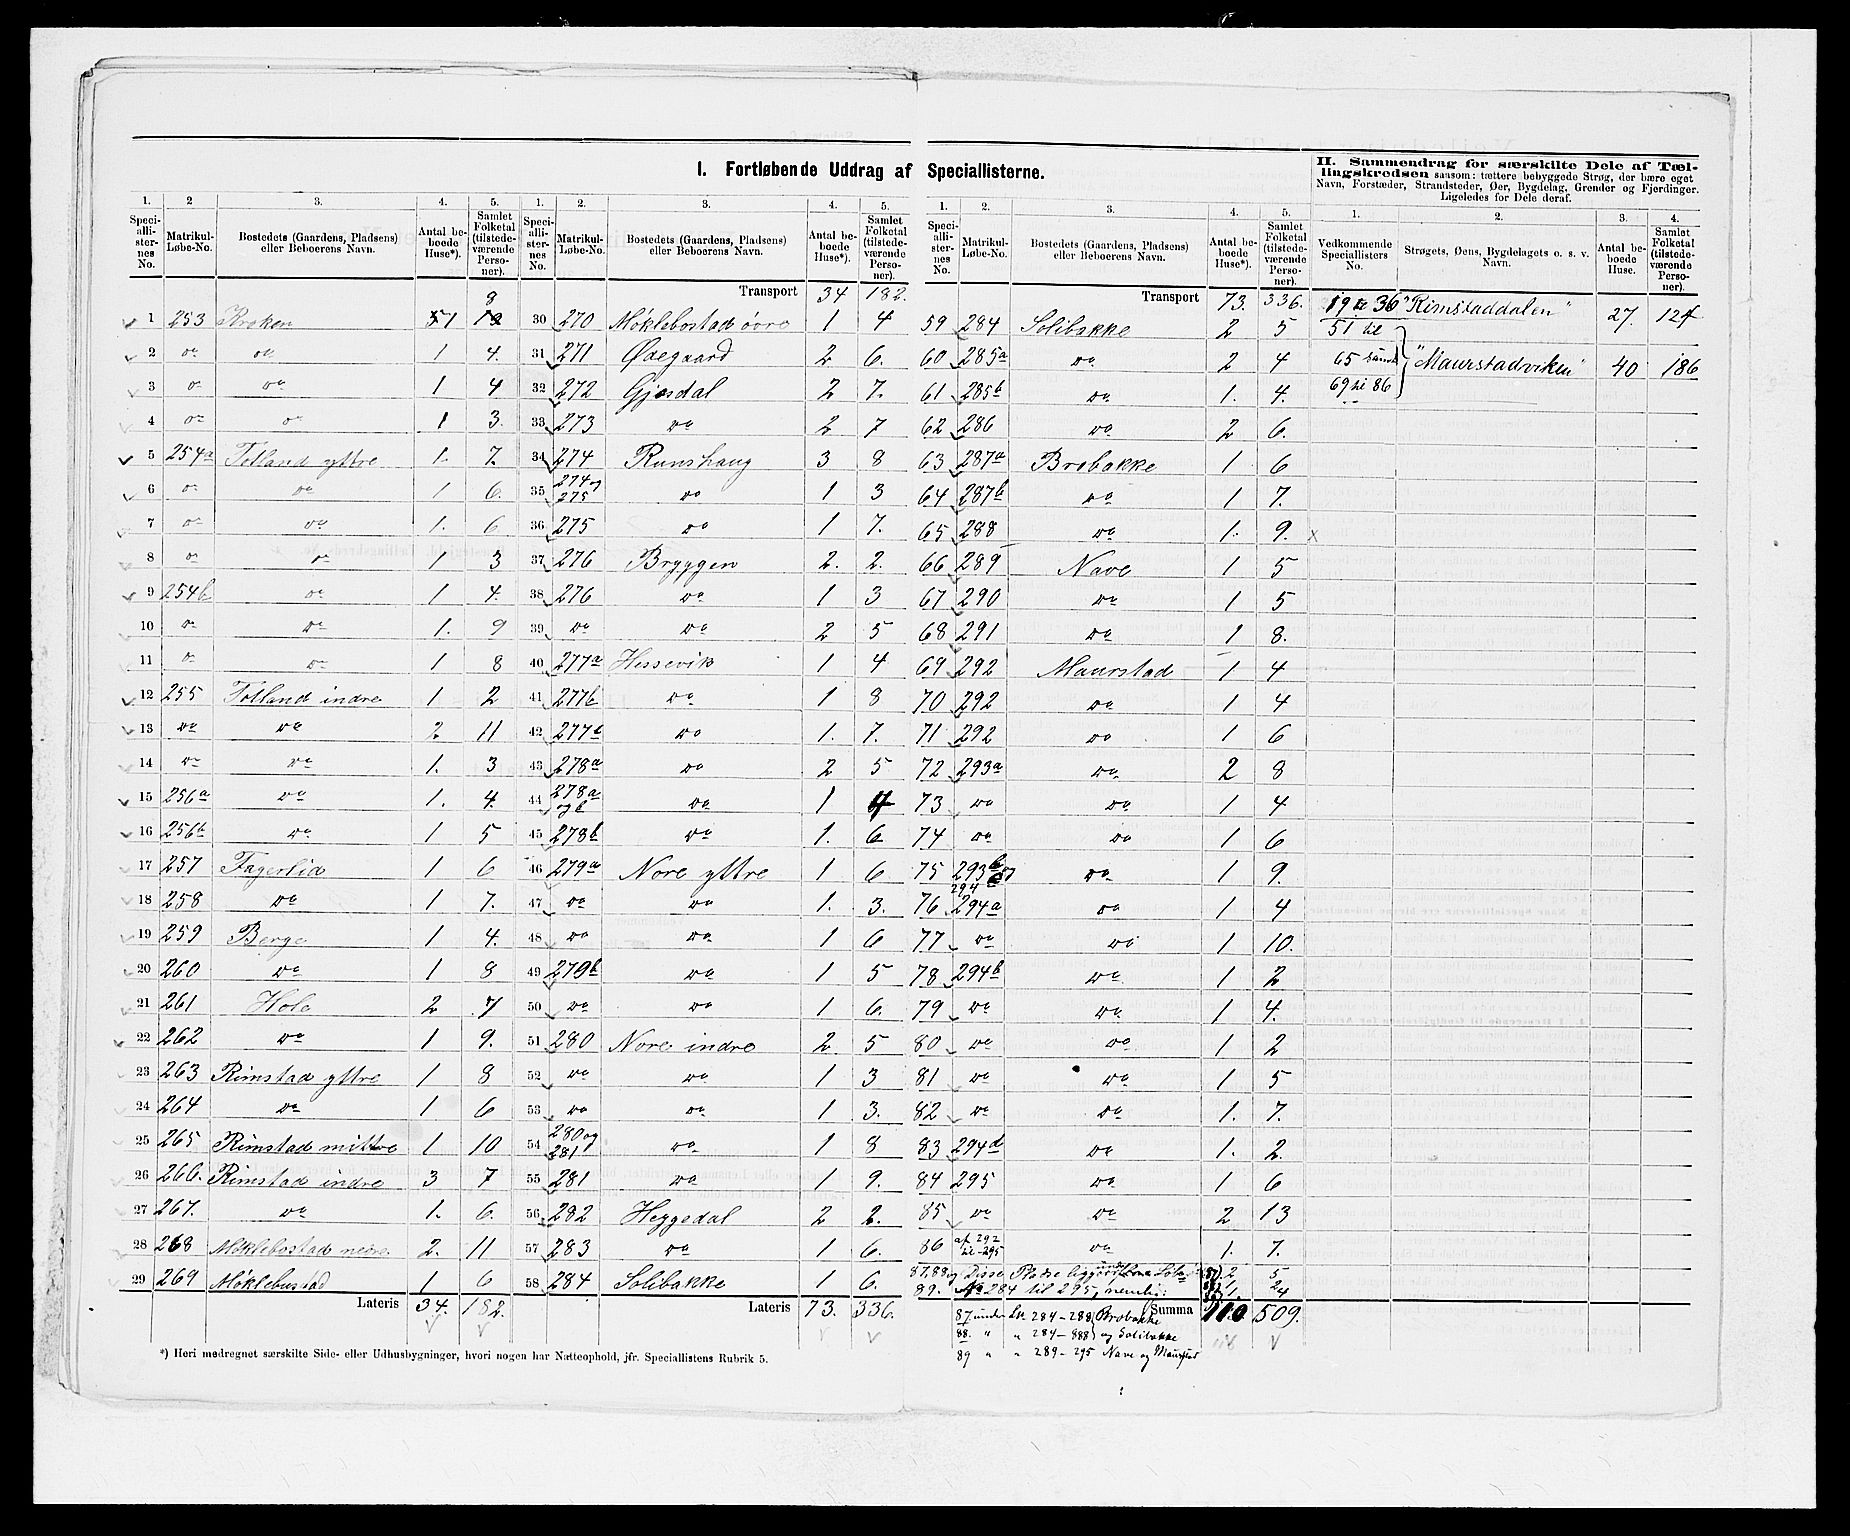 I. Fortløbende Uddrag af Speciallisterne.
II. Sammendrag for særskilte Dele af Tæl-
lingskredsen saasom: tættere bebyggede Strøg, der bære eget
Navn, Forstæder, Strandsteder, Øer, Bygdelag, Grender og Fjerdinger.
Ligeledes for Dele deraf.
1. 2 3. 4. 5.
Speciallisternes No. Matrikul-Løbe-No. Bostedets (Gaardens, Pladsens) eller Beboerens Navn. Antal beboede Huse*). Samlet Folketal (tilstedeværende Personer).
1 253 Kroken 1 8
2 do do 1 4.
3 do do 1 4
4 do do 1 3.
5 254a Totland yttre 1. 7.
6 do do 1 6.
7 do do 1. 6
8 do do 1 3
9 254b do 1 4.
10 do do 1. 9
11 do do 1 8
12 255 Totland indre 1 2
13 do do 2. 11
14 do do 1. 3
15 256a do 1. 4.
16 256b do 1 5
17 257 Fagerlid 1 6
18 258 do 1 7.
19 259 Berge 1 4.
20 260 do 1 8
21 261 Hole 2 7
22 262 do 1 9.
23 263 Rimstad yttre 1 8
24 264 do 1 6
25 265 Rimstad mittre 1 10
26 266. Rimstad indre 3 7
27 267. do 1. 6.
28 268 Møklebostad nedre 2. 11
29 269 Møklebustad 1 6
Lateris 34. 182.
*) Heri medregnet særskilte Side- eller Udhusbygninger, hvori nogen har Natteophold, jfr. Speciallistens Rubrik 5.
1. 2. 3. 4. 5.
Speciallisternes No. Matrikul-Løbe-No. Bostedets (Gaardens, Pladsens) eller Beboerens Navn. Antal beboede Huse*). Samlet Folketal (tilstedeværende Personer).
Transport 34 182.
30 270 Møklebostad øvre 1 4
31 271 Ødegaard 2 6.
32 272 Gjesdal 2 7.
33 273 do 2 7
34 274 Runshaug 3 8
35 274 og 275 do 1 3
36 275 do 1 7.
37 276 Bryggen 2. 2.
38 276 do 1 3
39 do do 2 5
40 277a Hessevik 1 4
41 277b do 1 8
42 277b do 1. 7.
43 278a do 2 5
44 278a og b do 1 4
45 278b do 1. 6
46 279a Nore yttre 1 6
47 do do 1. 3.
48 do do 1 6
49 279b do 1 5
50 do do 1 6.
51 280 Nore indre 2. 5
52 do do 1 3
53 do do 1 3.
54 280 og 281 do 1 8
55 281 do 1 9.
56 282 Heggedal 2 2.
57 283 do 1 6.
58 284 Solibakke 1 6.
Lateris 73. 336.
1. 2. 3. 4. 5.
Speciallisternes No. Matrikul-Løbe-No. Bostedets (Gaardens, Pladsens) eller Beboerens Navn. Antal beboede Huse*). Samlet Folketal (tilstedeværende Personer).
Transport 73. 336.
59 284 Solibakke 2 5
60 285a do 2 4
61 285b do 1. 4.
62 286 do 2 6.
63 287a Brobakke 1 6
64 287b do 1 7.
65 288 do 1. 9.
66 289 Nave 1 5
67 290 do 1 5
68 291 do 1 8.
69 292 Maurstad 1 4
70 292 do 1 4
71 292 do 1 6
72 293a do 2 8
73 do do 1 4
74 do do 1 6
75 293b do 1 9.
76 294 294a do 1 4
77 do do 1 10.
78 294b do 1 2
79 do do 1 4.
80 do do 1 2
81 do do 1 5
82 do do 1. 7.
83 294d do 1. 2.
84 295 do 1 6
85 do do 2 13
86 af 292 til 295 do 1. 7.
87, 88 og Disse Pladse ligger under 2 5
89. No 284 til 295, nemlig: 1. 2 4
Summa 110 509.
87 under Lb. 284-288 Brobakke
88. " " 284- 888 og Solibakke
89 " " 289-295 Nave og Maurstad
1. 2. 3. 4.
Vedkommende Speciallisters No. Strøgets, Øens, Bygdelagets o. s. v. Navn. Antal beboede Huse. Samlet Folketal (tilstedeværende Personer).
19 til 36 "Rimstaddalen" 27. 124
51 til
65 samt "Maurstadviken" 40 186
69 til 86